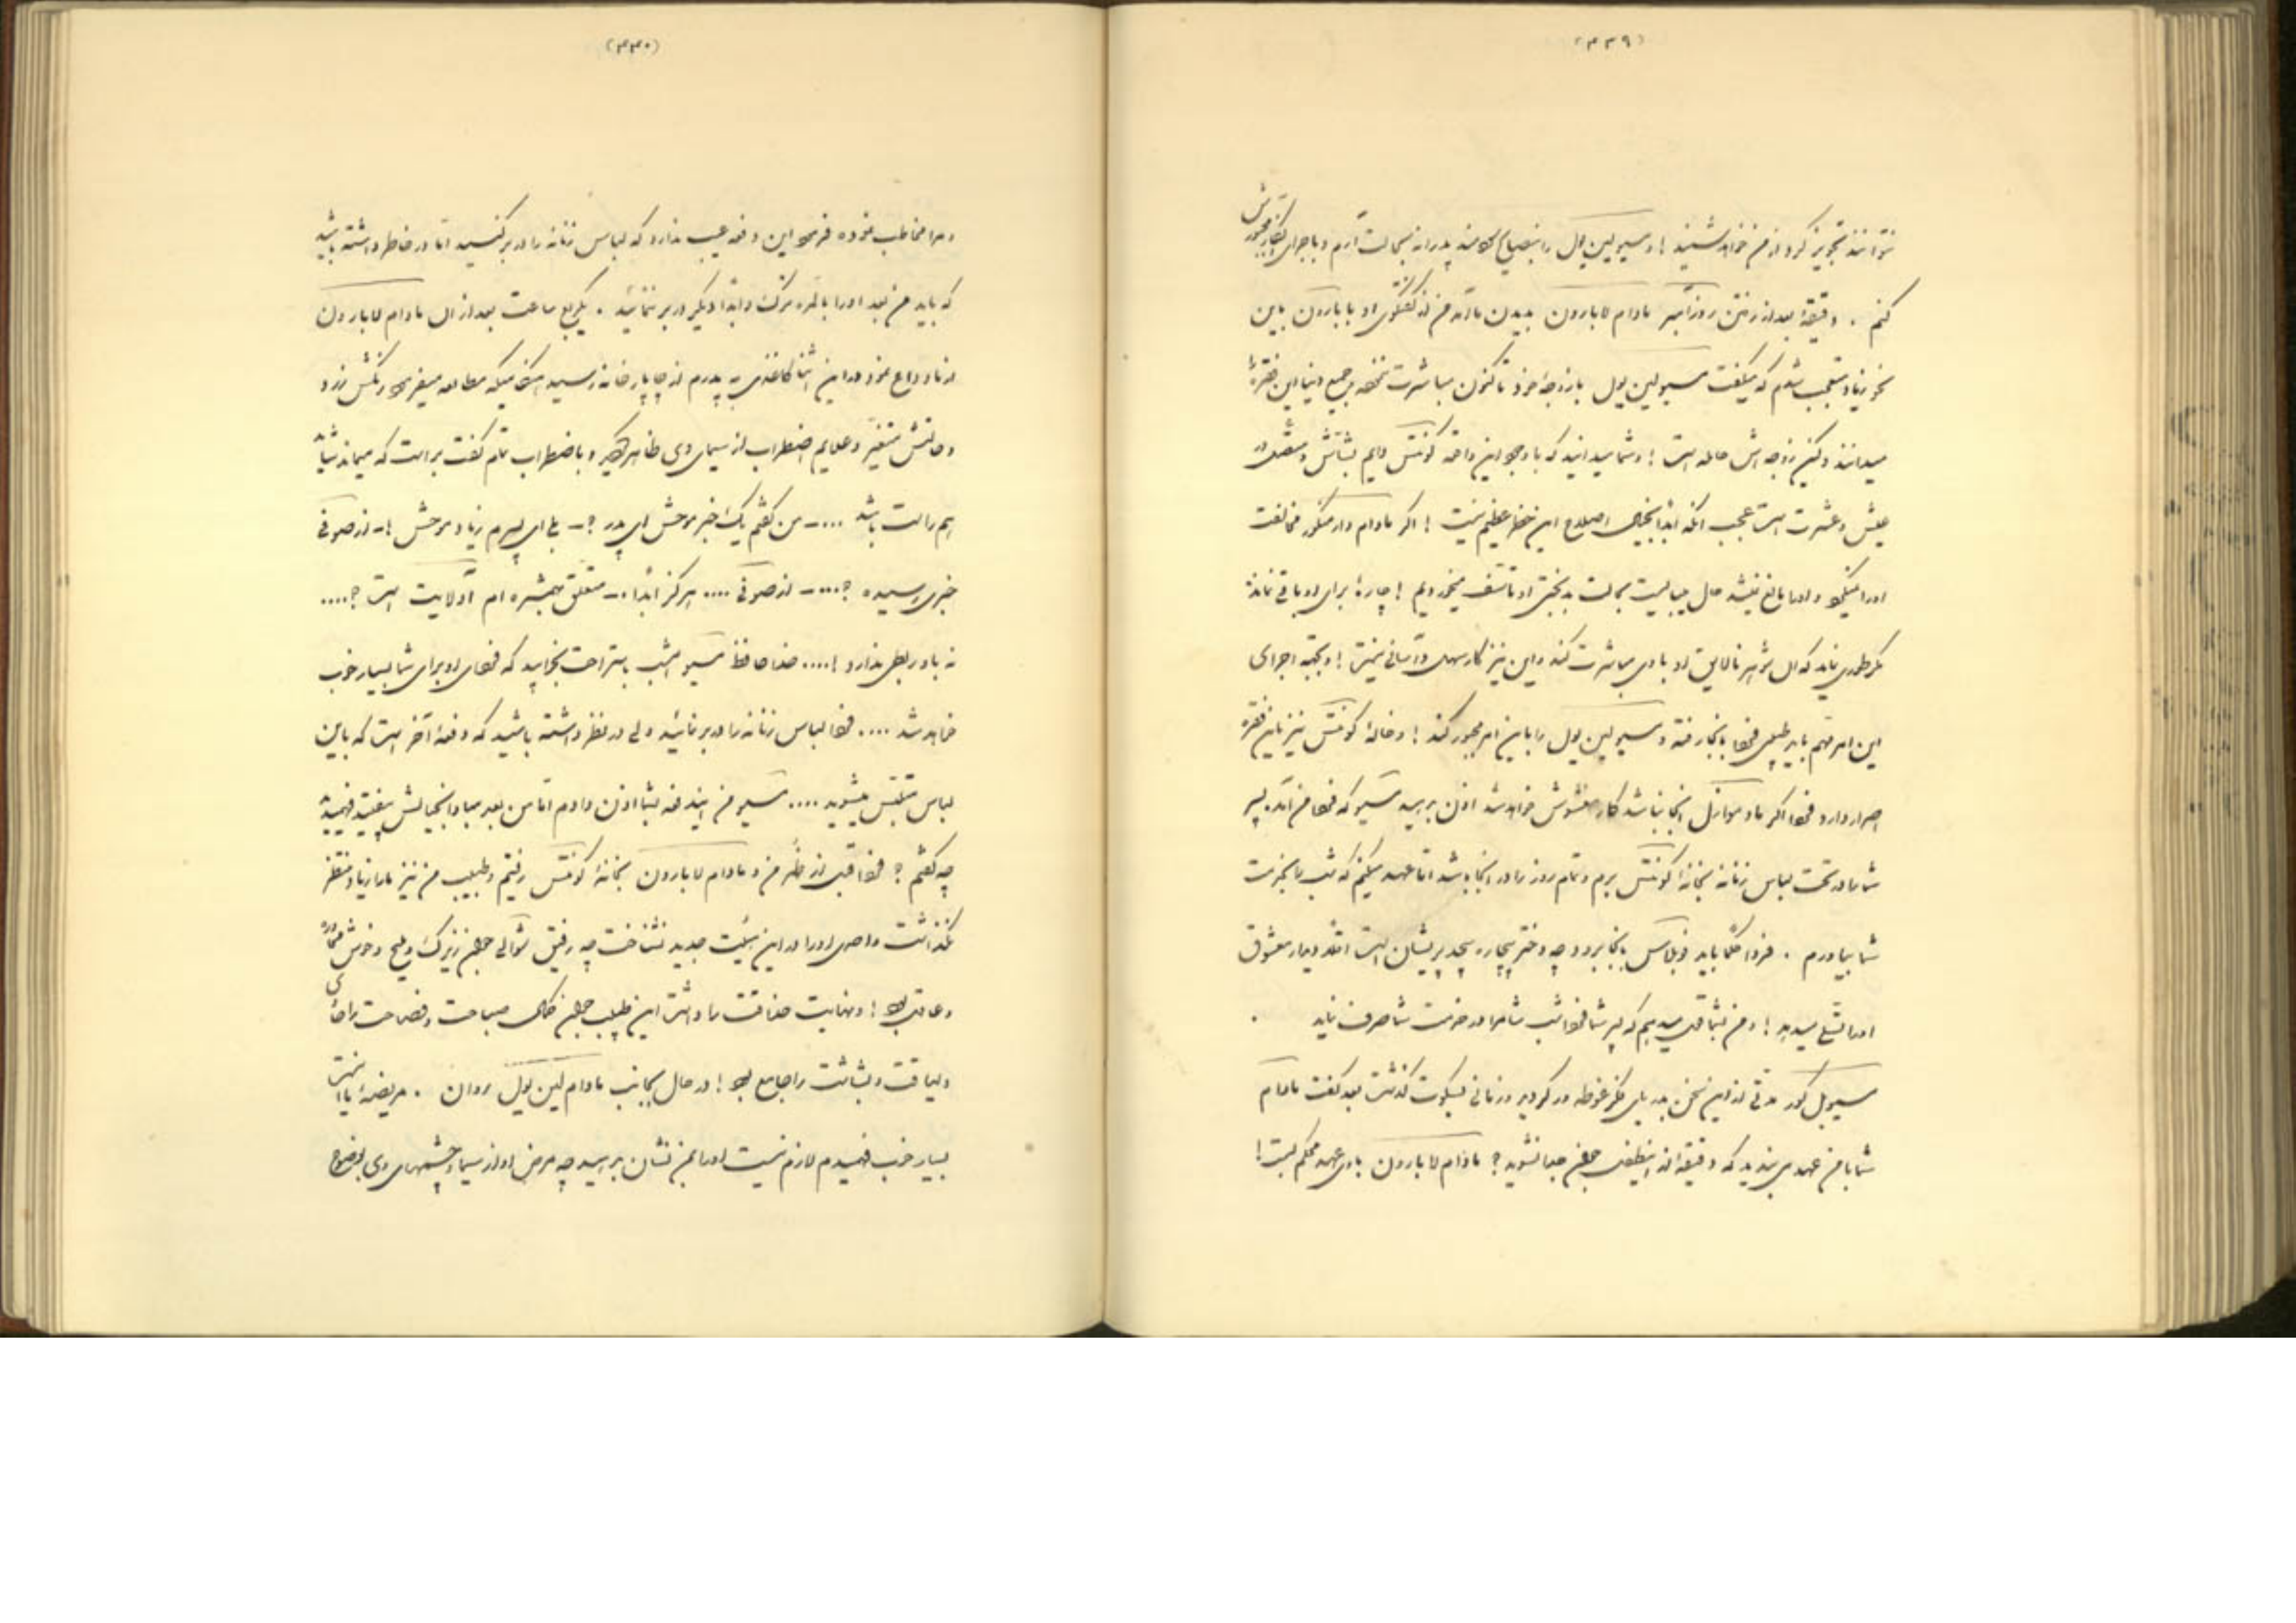 (۴۳۹)
نتوانند تجویز کرد از من خواهد شنید ! و مسیو لین پول را بنصایح پدرانه بحالت آرم و باجرای اینکار مجبورش
کنم . دقیقهٔ بعد از رفتن روزآمبر مادام لابارون بدیدن ما آمد من از گفتگوی او با بارون باین
نحو زیاد متعجب شدم که میگفت مسیو لین پول با زوجهٔ خود تاکنون مباشرت ننموده و جمیع دنیا این فقره را
میدانند ولکن زوجه اش حامله است ! و شما میدانید که با وجود این واقعه کونتس دایم بشاش و متصل در
عیش و عشرت است عجب آنکه ابداً بخیال اصلاح این خطر عظیم نیست ! اگر مادام دار منکور مخالفت
او را نمیکرد و او را مانع نمیشد حال میبایست بحالت بدبختی او تأسف میخوردیم ! چارهٔ برای او باقی نمانده
مگر طوری نماید که آن شوهر نالایق او با وی مباشرت کند و این نیز کار سهل و آسانی نیست ! و بجهة اجرای
این امر مهم باید طبیبی فردا بآنجا رفته و مسیو لین پول را باین امر مجبور کند ! و خالهٔ کونتس نیز باین فقره
اصرار دارد فردا اگر مادموازل آنجا نباشد کار مغشوش خواهد شد اذن بدهید مسیو که فردا من آمده پسر
شما را در تحت لباس زنانه بخانهٔ کونتس برم و تمام روز را در آنجا باشد اما عهد میکنم که شب بخدمت
شما بیاورم . فردا حکماً باید فوبلاس بآنجا برود چه دختر بیچاره بیحد پریشان است اقلاً دیدار معشوق
او را تسلی میدهد ! و من بشما قول میدهم که پسر شما فردا شب شام را در خدمت شما صرف نماید .
مسیو بل کور مدتی از این سخن بدریای فکر غوطه ور گردید و زمانی بسکوت گذشت بعد گفت مادام
شما با من عهد می بندید که دقیقهٔ از این طفل جوان جدا نشوید ؟ مادام لابارون با وی عهد محکم بست !
(۴۴۰)
و مرا مخاطب نموده فرمود این دفعه عیب ندارد که لباس زنانه را در بر کنید اما در خاطر داشته باشید
که باید من بعد او را بالمره ترک و ابداً دیگر در بر ننمائید . یکربع ساعت بعد از آن مادام لابارون
از ما وداع نمود در این اثنا کاغذی به پدرم از چاپارخانه رسید هنگامیکه مطالعه میفرمود رنگش زرد
و حالتش متغیر و علایم اضطراب از سیمای وی ظاهر گردید و با اضطراب تمام گفت براست که میماند شاید
هم راست باشد ....ــ من گفتم یک خبر موحش ای پدر ؟ــ بلی ای پسرم زیاد موحش !ــ از صوفی
خبری رسیده ؟....ــ از صوفی .... هرگز ابداً .ــ متعلق بهمشیره ام آدلائیت است ؟....
نه باو ربطی ندارد !.... خدا حافظ مسیو امشب باستراحت بخوابید که فردای او برای شما بسیار خوب
خواهد شد .... فردا لباس زنانه را در بر نمائید ولی در نظر داشته باشید که دفعهٔ آخر است که باین
لباس ملبس میشوید .... مسیو من ایندفعه بشما اذن دادم اما من بعد مبادا باینخیالش بیفتید فهمیدید
چه گفتم ؟ فردا قبل از ظهر من و مادام لابارون بخانهٔ کونتس رفتیم و طبیب من نیز ما را زیاد منتظر
نگذاشت و احدی او را در این هیئت جدید نشناخت چه رفیق شوالی جوان زیرک و ملیح و خوش محاوره
و عاقل بود ! و نهایت صداقت را داشت این طبیب جوان کمال صباحت و فصاحت را دارای
و لیاقت و بشاشت را جامع بود ! در حال بجانب مادام لین پول روان . مریضهٔ ما
بسیار خوب فهمیدم لازم نیست او را بمن نشان بدهید چه مرض او از سیما و چشمهای وی بوضوح